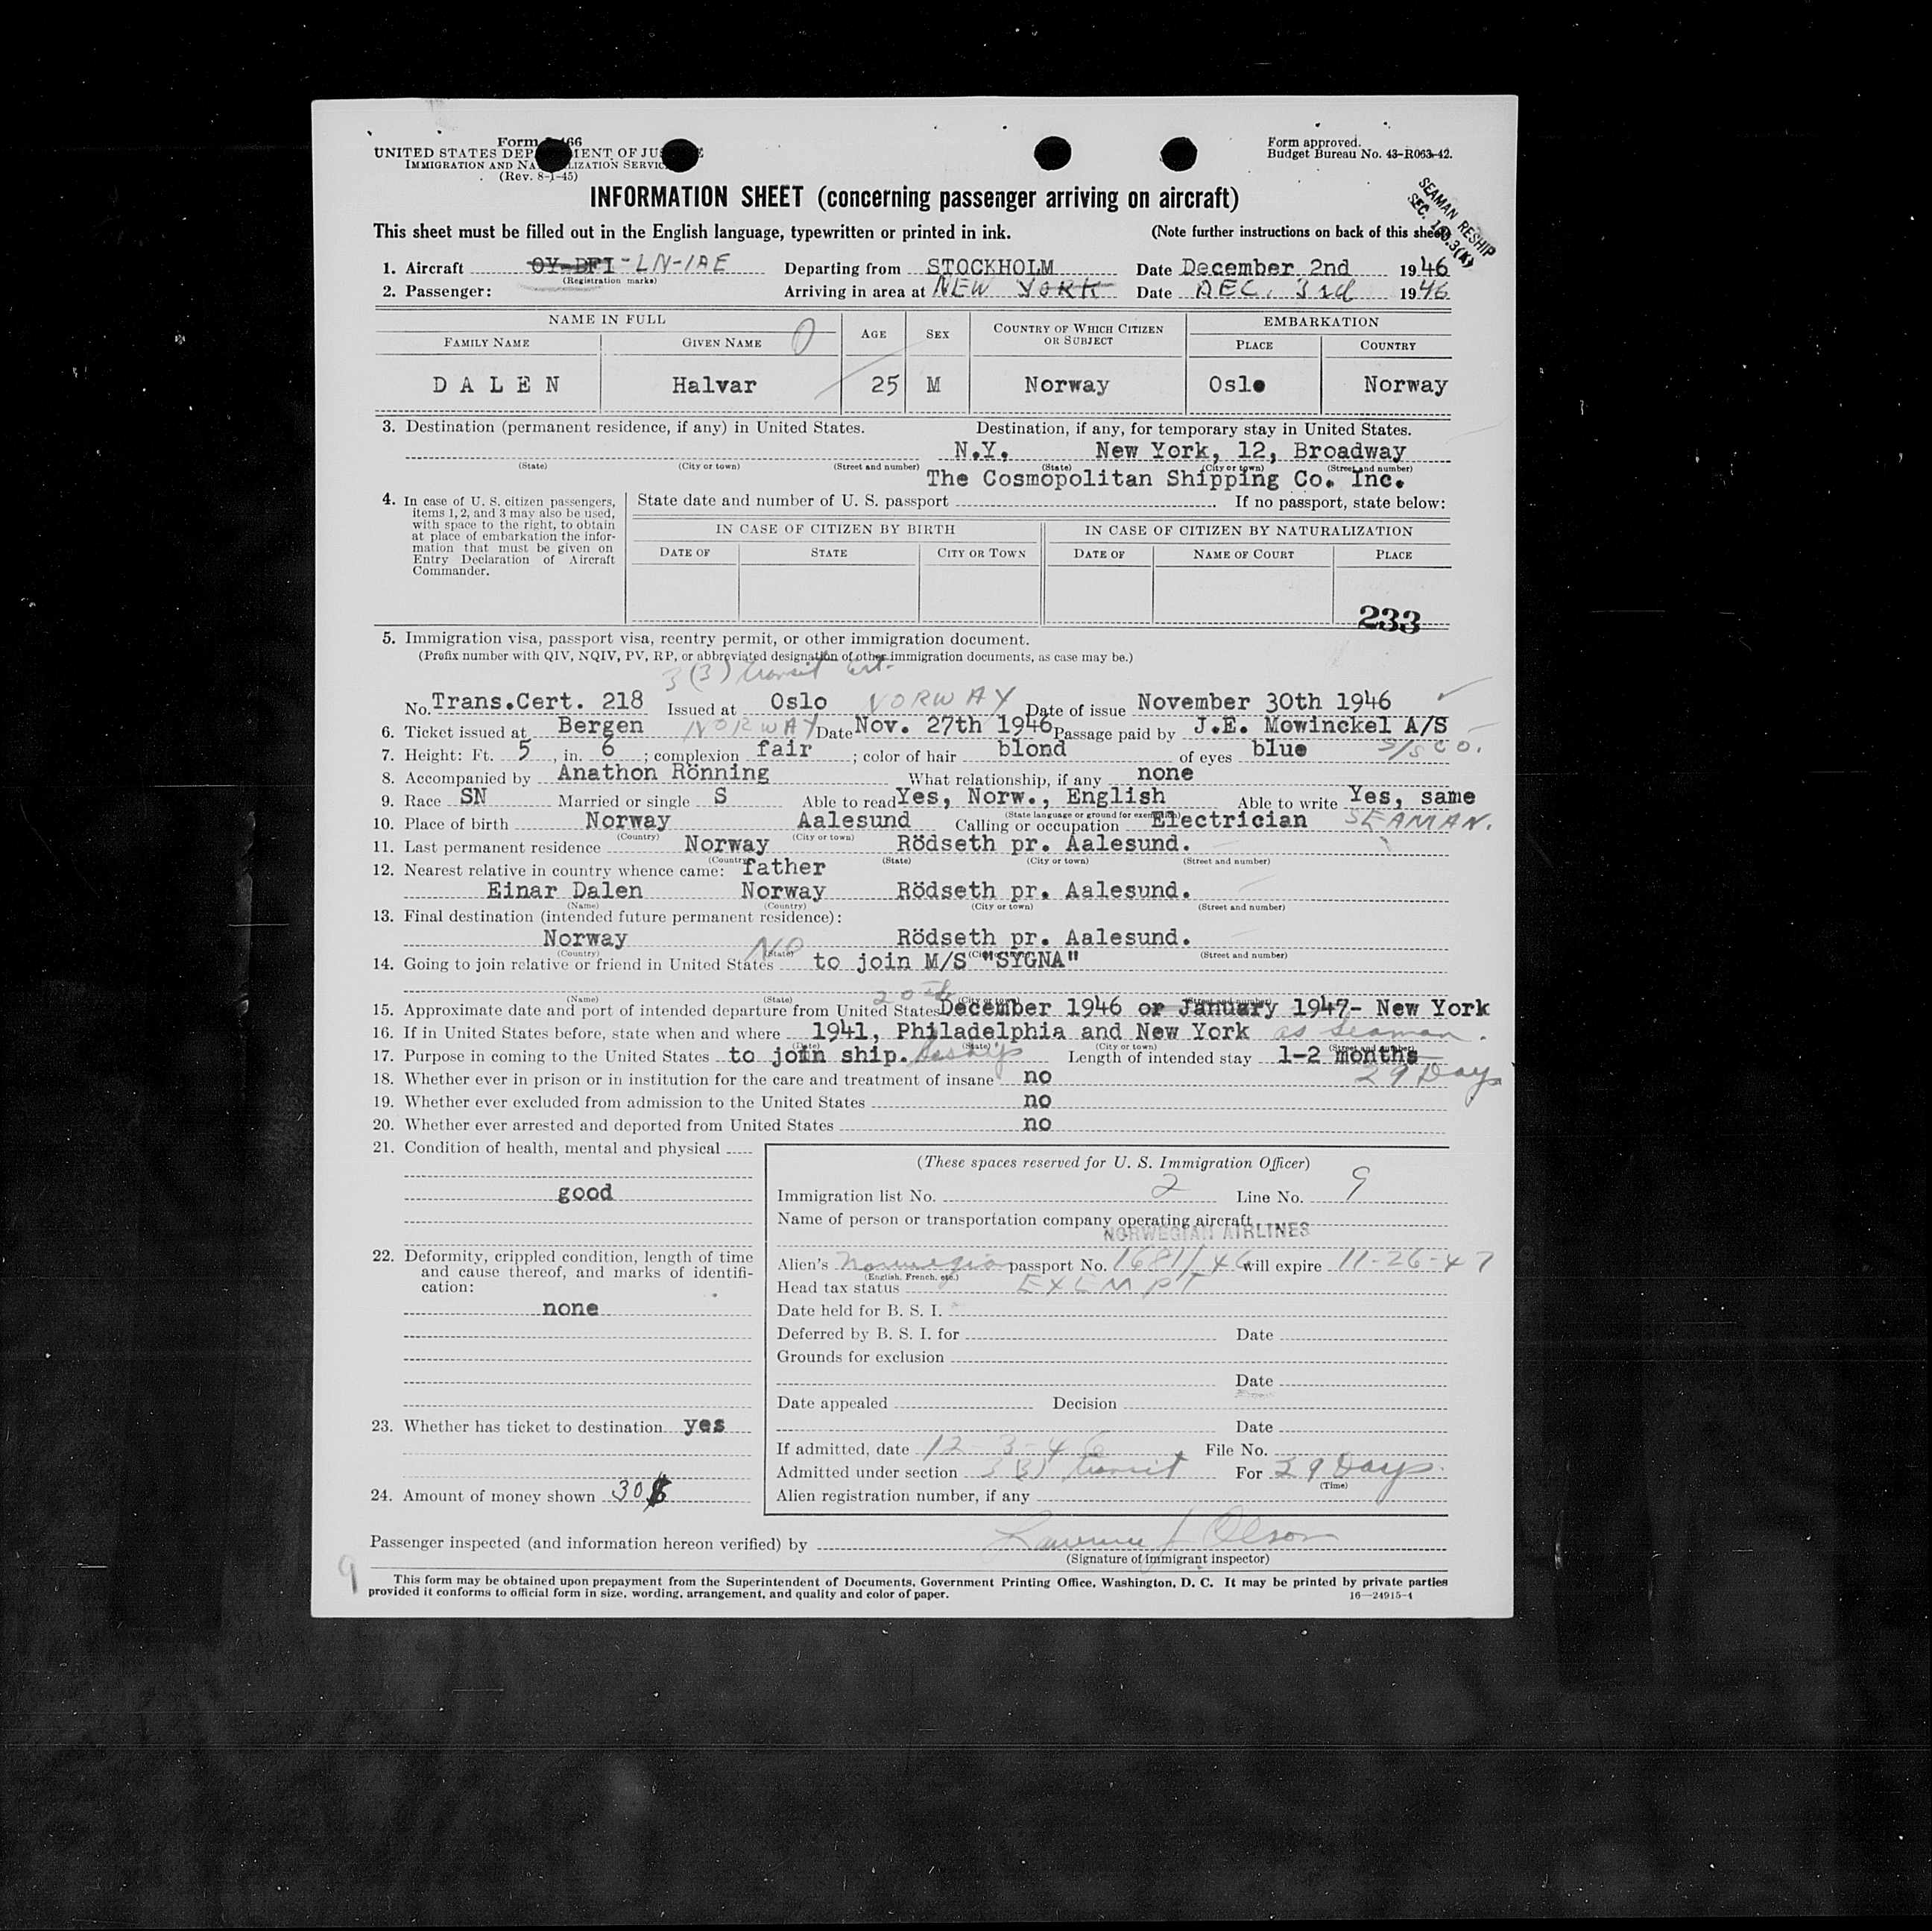 Form 466
UNITED STATES DEPARTMENT OF JUSTICE
IMMIGRATION AND NATURALIZATION SERVICE
(Rev. 8-1-45)
Form approved.
Budget Bureau No. 43-R063-42.
SEAMAN RESHIP
SEC.
INFORMATION SHEET (concerning passenger arriving on aircraft)
This sheet must be filled out in the English language, typewritten or printed in ink. (Note further instructions on back of this sheet)
1. Aircraft OY-DFI-LN-IAE Departing from STOCKHOLM Date December 2nd 1946
(Registration marks)
2. Passenger: Arriving in area at NEW YORK Date DEC. 3rd 1946
NAME IN FULL AGE SEX COUNTRY OF WHICH CITIZEN OR SUBJECT EMBARKATION
FAMILY NAME GIVEN NAME PLACE COUNTRY
DALEN Halvar 25 M Norway Oslo Norway
3. Destination (permanent residence, if any) in United States. Destination, if any, for temporary stay in United States.
N.Y. New York, 12, Broadway
(State) (City or town) (Street and number) (State) (City or town) (Street and number)
The Cosmopolitan Shipping Co. Inc.
4. In case of U. S. citizen passengers, items 1, 2, and 3 may also be used, with space to the right, to obtain at place of embarkation the information that must be given on Entry Declaration of Aircraft Commander.
State date and number of U. S. passport If no passport, state below:
IN CASE OF CITIZEN BY BIRTH IN CASE OF CITIZEN BY NATURALIZATION
DATE OF STATE CITY OR TOWN DATE OF NAME OF COURT PLACE
233
5. Immigration visa, passport visa, reentry permit, or other immigration document.
(Prefix number with QIV, NQIV, PV, RP, or abbreviated designation of other immigration documents, as case may be.)
3(3) transit Cert.
No. Trans.Cert. 218 Issued at Oslo NORWAY Date of issue November 30th 1946
6. Ticket issued at Bergen NORWAY Date Nov. 27th 1946 Passage paid by J.E. Mowinckel A/S
S/S CO.
7. Height: Ft. 5, in. 6; complexion fair; color of hair blond of eyes blue
8. Accompanied by Anathon Rönning What relationship, if any none
9. Race SN Married or single S Able to read Yes, Norw., English Able to write Yes, same
(State language or ground for exemption)
10. Place of birth Norway Aalesund Calling or occupation Electrician SEAMAN.
(Country) (City or town)
11. Last permanent residence Norway Rödseth pr. Aalesund.
(Country) (State) (City or town) (Street and number)
12. Nearest relative in country whence came: father
Einar Dalen Norway Rödseth pr. Aalesund.
(Name) (Country) (City or town) (Street and number)
13. Final destination (intended future permanent residence):
Norway Rödseth pr. Aalesund.
(Country) (State) (City or town) (Street and number)
14. Going to join relative or friend in United States NO to join M/S "SYGNA"
(Name) (State) (City or town) (Street and number)
15. Approximate date and port of intended departure from United States 20th December 1946 or January 1947- New York
16. If in United States before, state when and where 1941, Philadelphia and New York as seaman.
(Date) (State) (City or town) (Street and number)
17. Purpose in coming to the United States to join ship. Length of intended stay 1-2 months
29 Days
18. Whether ever in prison or in institution for the care and treatment of insane no
19. Whether ever excluded from admission to the United States no
20. Whether ever arrested and deported from United States no
21. Condition of health, mental and physical
good
22. Deformity, crippled condition, length of time and cause thereof, and marks of identification:
none
23. Whether has ticket to destination yes
24. Amount of money shown 30 $
(These spaces reserved for U. S. Immigration Officer)
Immigration list No. 2 Line No. 9
Name of person or transportation company operating aircraft
NORWEGIAN AIRLINES
Alien's Norwegian passport No. 1681/46 will expire 11-26-47
(English, French, etc.)
Head tax status EXEMPT
Date held for B. S. I.
Deferred by B. S. I. for Date
Grounds for exclusion
Date
Date appealed Decision
Date
If admitted, date 12-3-46 File No.
Admitted under section 3(3) transit For 29 Days.
(Time)
Alien registration number, if any
Passenger inspected (and information hereon verified) by Lawrence J Olson
(Signature of immigrant inspector)
9
This form may be obtained upon prepayment from the Superintendent of Documents, Government Printing Office, Washington, D. C. It may be printed by private parties
provided it conforms to official form in size, wording, arrangement, and quality and color of paper. 16—24915-1